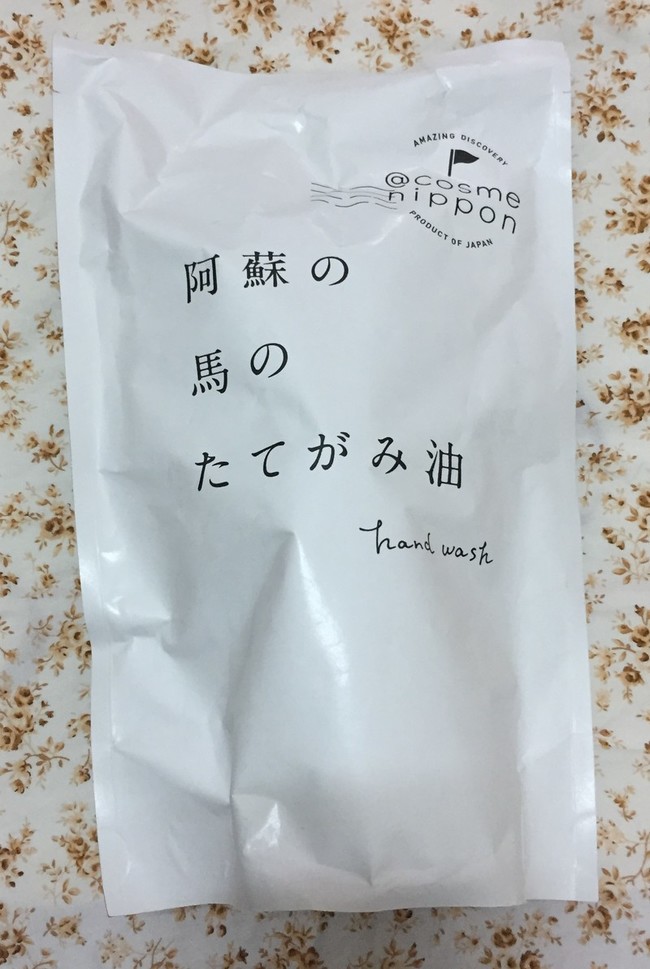 AMAZING DISCOVERY
@cosme
nippon
PRODUCT OF JAPAN
阿蘇の
馬の
たてがみ油
hand wash